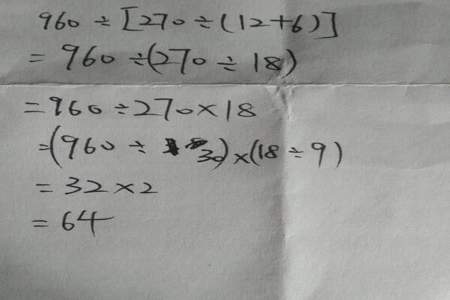 960 ÷ [270 ÷ (12+6)]
= 960 ÷ (270 ÷ 18)
= 960 ÷ 270 × 18
= (960 ÷ 30) × (18 ÷ 9)
= 32 × 2
= 64